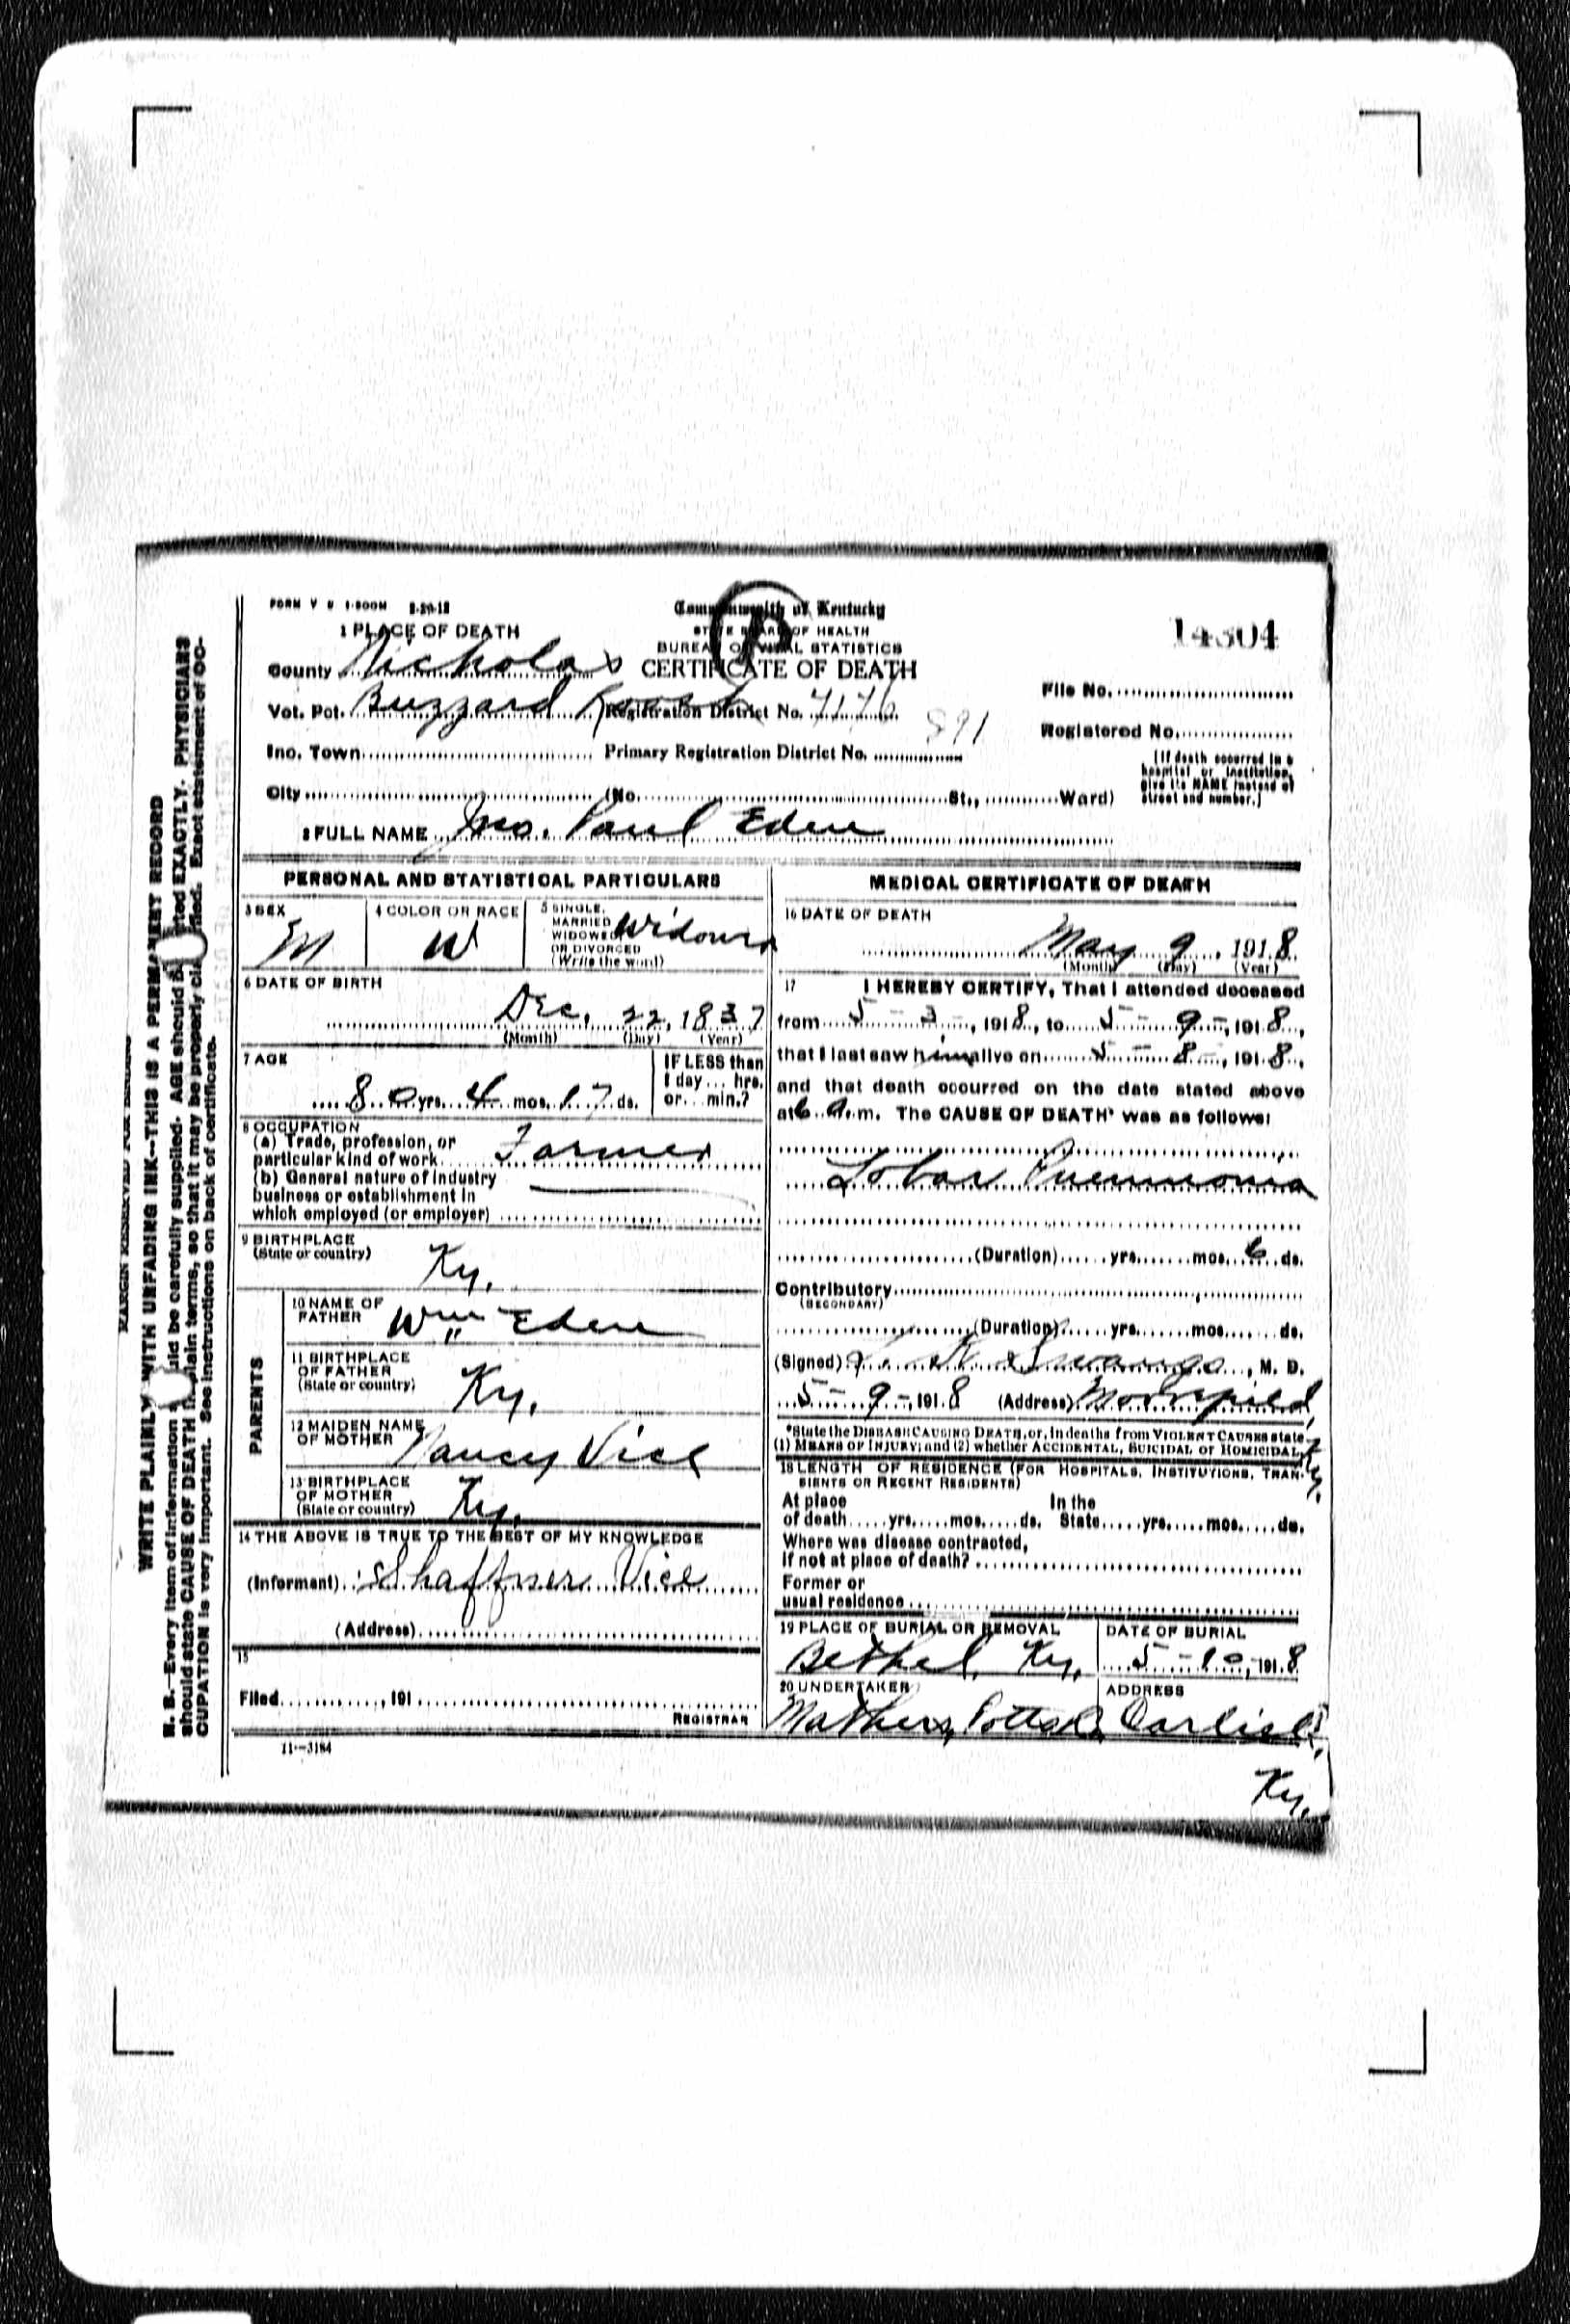 FORM V S 1-500M 2-20-12
Commonwealth of Kentucky
STATE BOARD OF HEALTH
BUREAU OF VITAL STATISTICS
CERTIFICATE OF DEATH
1 PLACE OF DEATH
County Nicholas
Vot. Pct. Buzzard Roost Registration District No. 7176
891
Inc. Town Primary Registration District No.
City (No. St., Ward)
File No.
Registered No.
(If death occurred in a
hospital or institution,
give its NAME instead of
street and number.)
2 FULL NAME Jno. Paul Eden
PERSONAL AND STATISTICAL PARTICULARS
3 SEX
M
4 COLOR OR RACE
W
5 SINGLE,
MARRIED
WIDOWED
OR DIVORCED
(Write the word)
Widower
6 DATE OF BIRTH
Dec. 22, 1837
(Month) (Day) (Year)
7 AGE
80 yrs. 4 mos. 17 ds.
IF LESS than
1 day ... hrs.
or ... min.?
8 OCCUPATION
(a) Trade, profession, or
particular kind of work Farmer
(b) General nature of industry
business or establishment in
which employed (or employer)
9 BIRTHPLACE
(State or country)
Ky.
PARENTS
10 NAME OF
FATHER
Wm Eden
11 BIRTHPLACE
OF FATHER
(State or country)
Ky.
12 MAIDEN NAME
OF MOTHER
Nancy Vice
13 BIRTHPLACE
OF MOTHER
(State or country)
Ky.
14 THE ABOVE IS TRUE TO THE BEST OF MY KNOWLEDGE
(Informant) Shaffner Vice
(Address)
15
Filed , 191
REGISTRAR
11-3184
MEDICAL CERTIFICATE OF DEATH
16 DATE OF DEATH
May 9, 1918
(Month) (Day) (Year)
17 I HEREBY CERTIFY, That I attended deceased
from 5 - 3 -, 1918, to 5 - 9 -, 1918,
that I last saw him alive on 5 - 8 -, 1918,
and that death occurred on the date stated above
at 6 a.m. The CAUSE OF DEATH* was as follows:
Lobar Pneumonia
(Duration) yrs. mos. 6 ds.
Contributory
(SECONDARY)
(Duration) yrs. mos. ds.
(Signed) , M. D.
5 - 9 -, 1918 (Address) Moorefield,
Ky.
*State the DISEASE CAUSING DEATH, or, in deaths from VIOLENT CAUSES state
(1) MEANS OF INJURY; and (2) whether ACCIDENTAL, SUICIDAL or HOMICIDAL.
18 LENGTH OF RESIDENCE (FOR HOSPITALS, INSTITUTIONS, TRAN-
SIENTS OR RECENT RESIDENTS)
At place In the
of death yrs. mos. ds. State yrs. mos. ds.
Where was disease contracted,
If not at place of death?
Former or
usual residence
19 PLACE OF BURIAL OR REMOVAL
Bethel, Ky.
DATE OF BURIAL
5 - 10 -, 1918
20 UNDERTAKER
Mathers, Potts &
ADDRESS
Carlisle,
Ky.
WRITE PLAINLY WITH UNFADING INK--THIS IS A PERMANENT RECORD
N. B.--Every item of information should be carefully supplied. AGE should be stated EXACTLY. PHYSICIANS
should state CAUSE OF DEATH in plain terms, so that it may be properly classified. Exact statement of OC-
CUPATION is very important. See instructions on back of certificate.